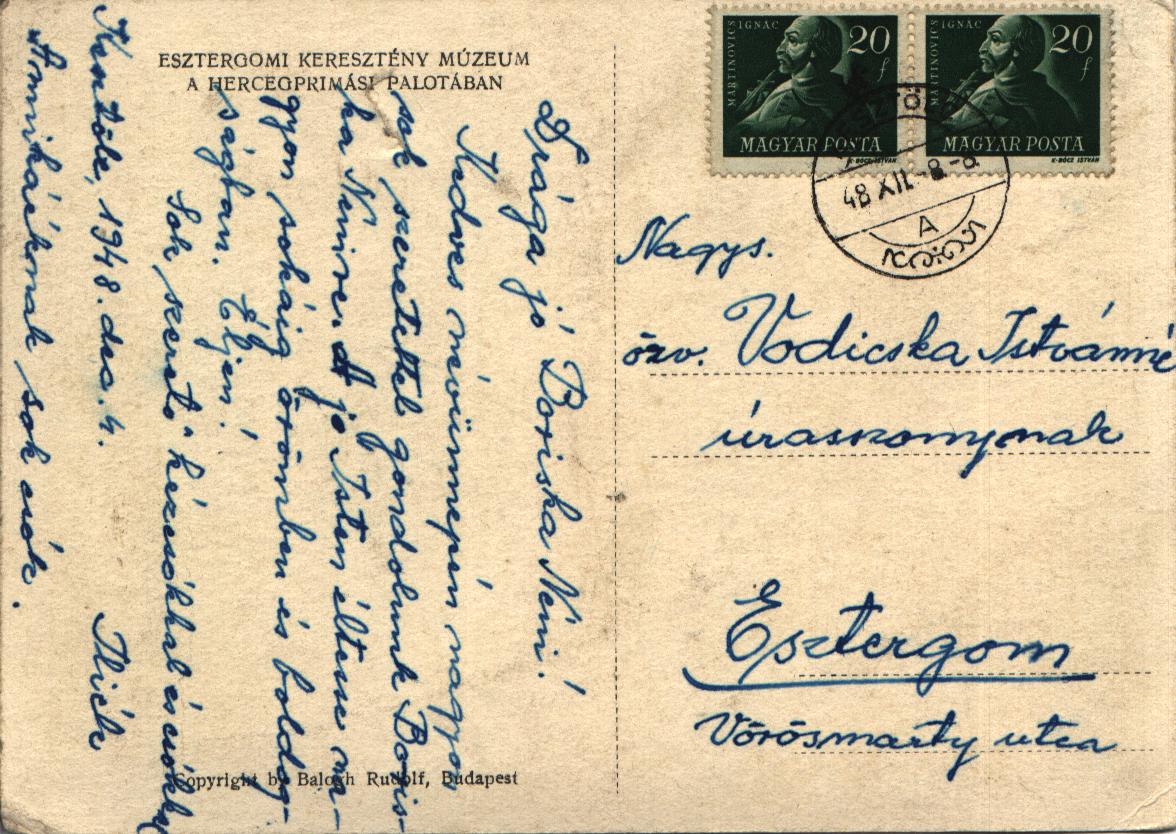 ESZTERGOMI KERESZTÉNY MÚZEUM
A HERCEGPRIMÁSI PALOTÁBAN
Drága jó Boriska Neni!
Kedves névünnepén nagyon
sok szeretettel gondolunk Boris-
ka Nenire. A jó Isten éltesse na-
gyon sokáig örömben és boldog-
ságban. Éljen!
Sok szerető kézcsókkal és csókkal
Kesztölc, 1948. dec. 4.
Annuskáéknak sok csók.
Copyright by Balogh Rudolf, Budapest
MARTINOVICS IGNÁC
20
f
MAGYAR POSTA
K-BÖCZ ISTVÁN
MARTINOVICS IGNÁC
20
f
MAGYAR POSTA
K-BÖCZ ISTVÁN
48 XII -8-8
A
Nagys.
özv. Vodicska Istvánné
úrasszonynak
Esztergom
Vörösmarty utca